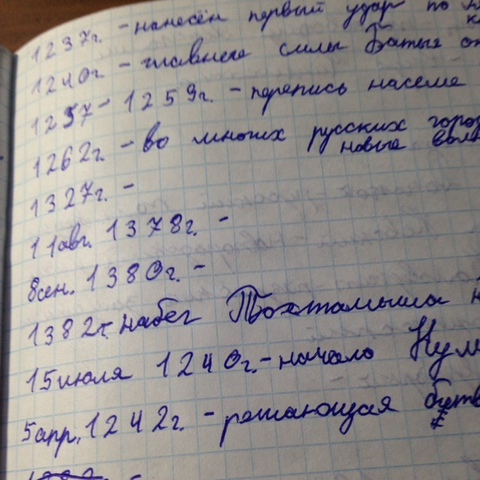 1237г. - нанесён первый удар по
1240г. - главные силы Батыя
1257 - 1259г. - перепись населе
1262г. - во многих русских горо
новые вол
1327г. -
11 авг. 1378г. -
8 сен. 1380г. -
1382г. набег Тохтамыша н
15 июля 1240г. - начало
5 апр. 1242г. - решающая битв